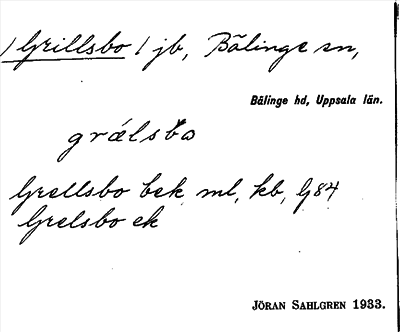 /Grillsbo/ jb, Bälinge sn,
Bälinge hd, Uppsala län.
grǽlsbo
Grellsbo bek, ml, kb, G84
Grelsbo ek
JÖRAN SAHLGREN 1933.